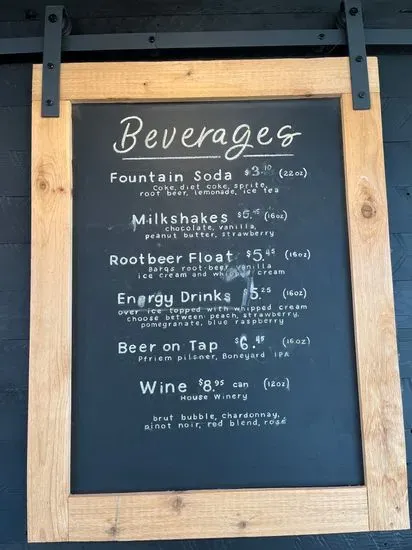 Beverages
Fountain Soda $3.10 (22oz)
Coke, diet coke, sprite,
root beer, lemonade, ice tea
Milkshakes $6.45 (16oz)
chocolate, vanilla,
peanut butter, strawberry
Rootbeer Float $5.45 (16oz)
Barqs root-beer, vanilla
ice cream and whipped cream
Energy Drinks $5.25 (16oz)
over ice topped with whipped cream
choose between: peach, strawberry,
pomegranate, blue raspberry
Beer on Tap $6.45 (16oz)
Pfriem pilsner, Boneyard IPA
Wine $8.95 can (12oz)
House Winery
brut bubble, chardonnay,
pinot noir, red blend, rosé